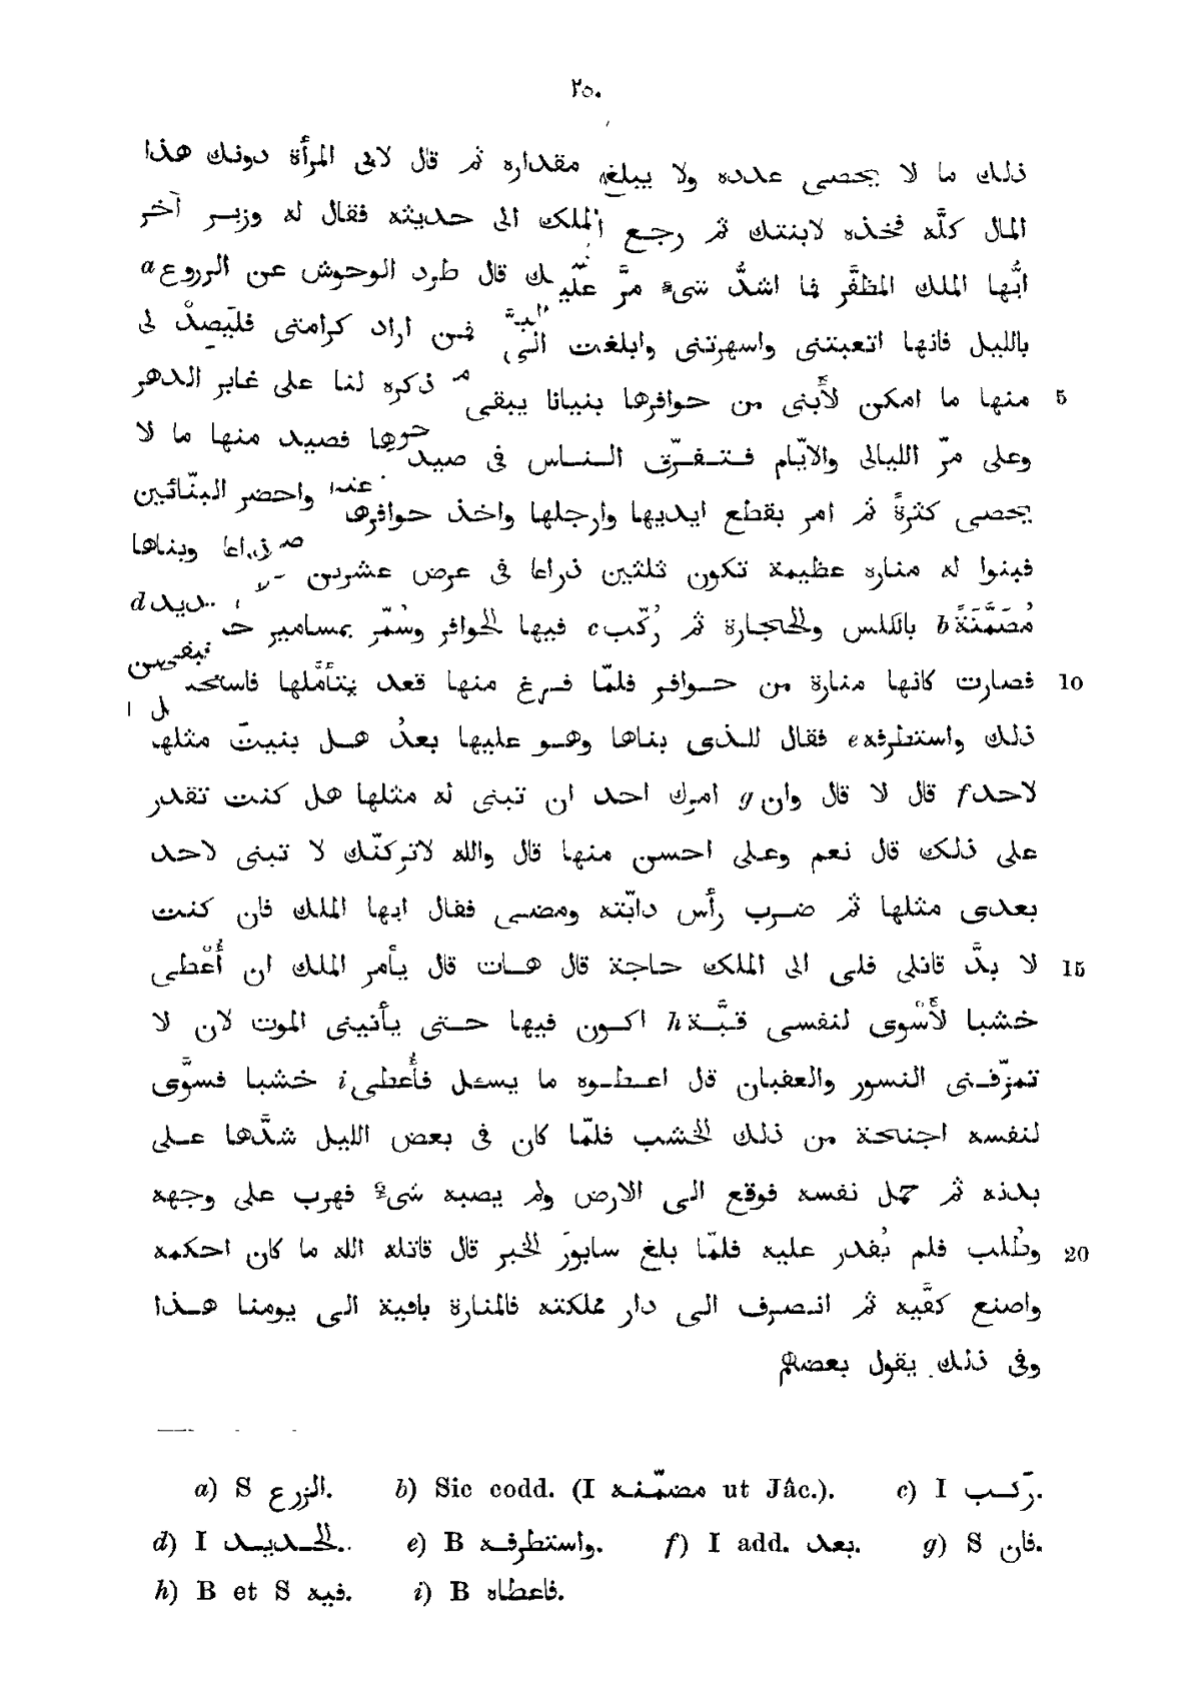 ٢٥٠
ذلك ما لا يحصى عدده ولا يبلغ مقداره ثم قال لابى المرأة دونك هذا
المال كلَّه فخذه لابنتك ثم رجع الملك الى حديثه فقال له وزير آخر
ايُّها الملك المظفَّر فما اشدُّ شىء مرَّ عليك قال طرد الوحوش عن الزروع a
بالليل فانها اتعبتنى واسهرتنى وابلغت الىّ فمن اراد كرامتى فليَصِدْ لى
5 منها ما امكن لأَبنى من حوافرها بنيانا يبقى ذكره لنا على غابر الدهر
وعلى مرّ الليالى والايّام فتفرّق الناس فى صيدها فصيد منها ما لا
يحصى كثرةً ثم امر بقطع ايديها وارجلها واخذ حوافرها واحضر البنّائين
فبنوا له مناره عظيمة تكون ثلثين ذراعا فى عرض عشرين ذراعا وبناها
مُصَمَّتَةً b بالكلس والحجارة ثم رُكّب c فيها الحوافر وسُمّر بمسامير حديد d
10 فصارت كانها منارة من حوافر فلمّا فرغ منها قعد يتأمَّلها
ذلك واستطرفه e فقال للذى بناها وهو عليها بعدُ هل بنيتَ مثلها
لاحد f قال لا قال وان g امرك احد ان تبنى له مثلها هل كنت تقدر
على ذلك قال نعم وعلى احسن منها قال والله لاتركنّك لا تبنى لاحد
بعدى مثلها ثم ضرب رأس دابّته ومضى فقال ايها الملك فان كنت
15 لا بدَّ قاتلى فلى الى الملك حاجة قال هات قال يأمر الملك ان أُعْطى
خشبا لأُسْوى لنفسى قبَّة h اكون فيها حتى يأتينى الموت لان لا
تمزّقنى النسور والعقبان قل اعطوه ما يسئل فأُعطى i خشبا فسوَّى
لنفسه اجنحة من ذلك الخشب فلمّا كان فى بعض الليل شدَّها على
بدنه ثم حمل نفسه فوقع الى الارض ولم يصبه شىء فهرب على وجهه
20 وطُلب فلم يُقدر عليه فلمّا بلغ سابورَ الخبر قال قاتله الله ما كان احكمه
واصنع كفَّيه ثم انصرف الى دار مملكته فالمنارة باقية الى يومنا هذا
وفى ذلك يقول بعضهم
a) S الزرع. b) Sic codd. (I مصمّنه ut Jâc.). c) I رَكّب.
d) I الحديد. e) B واستظرفه. f) I add. بعد. g) S فان.
h) B et S فيه. i) B فاعطاه.